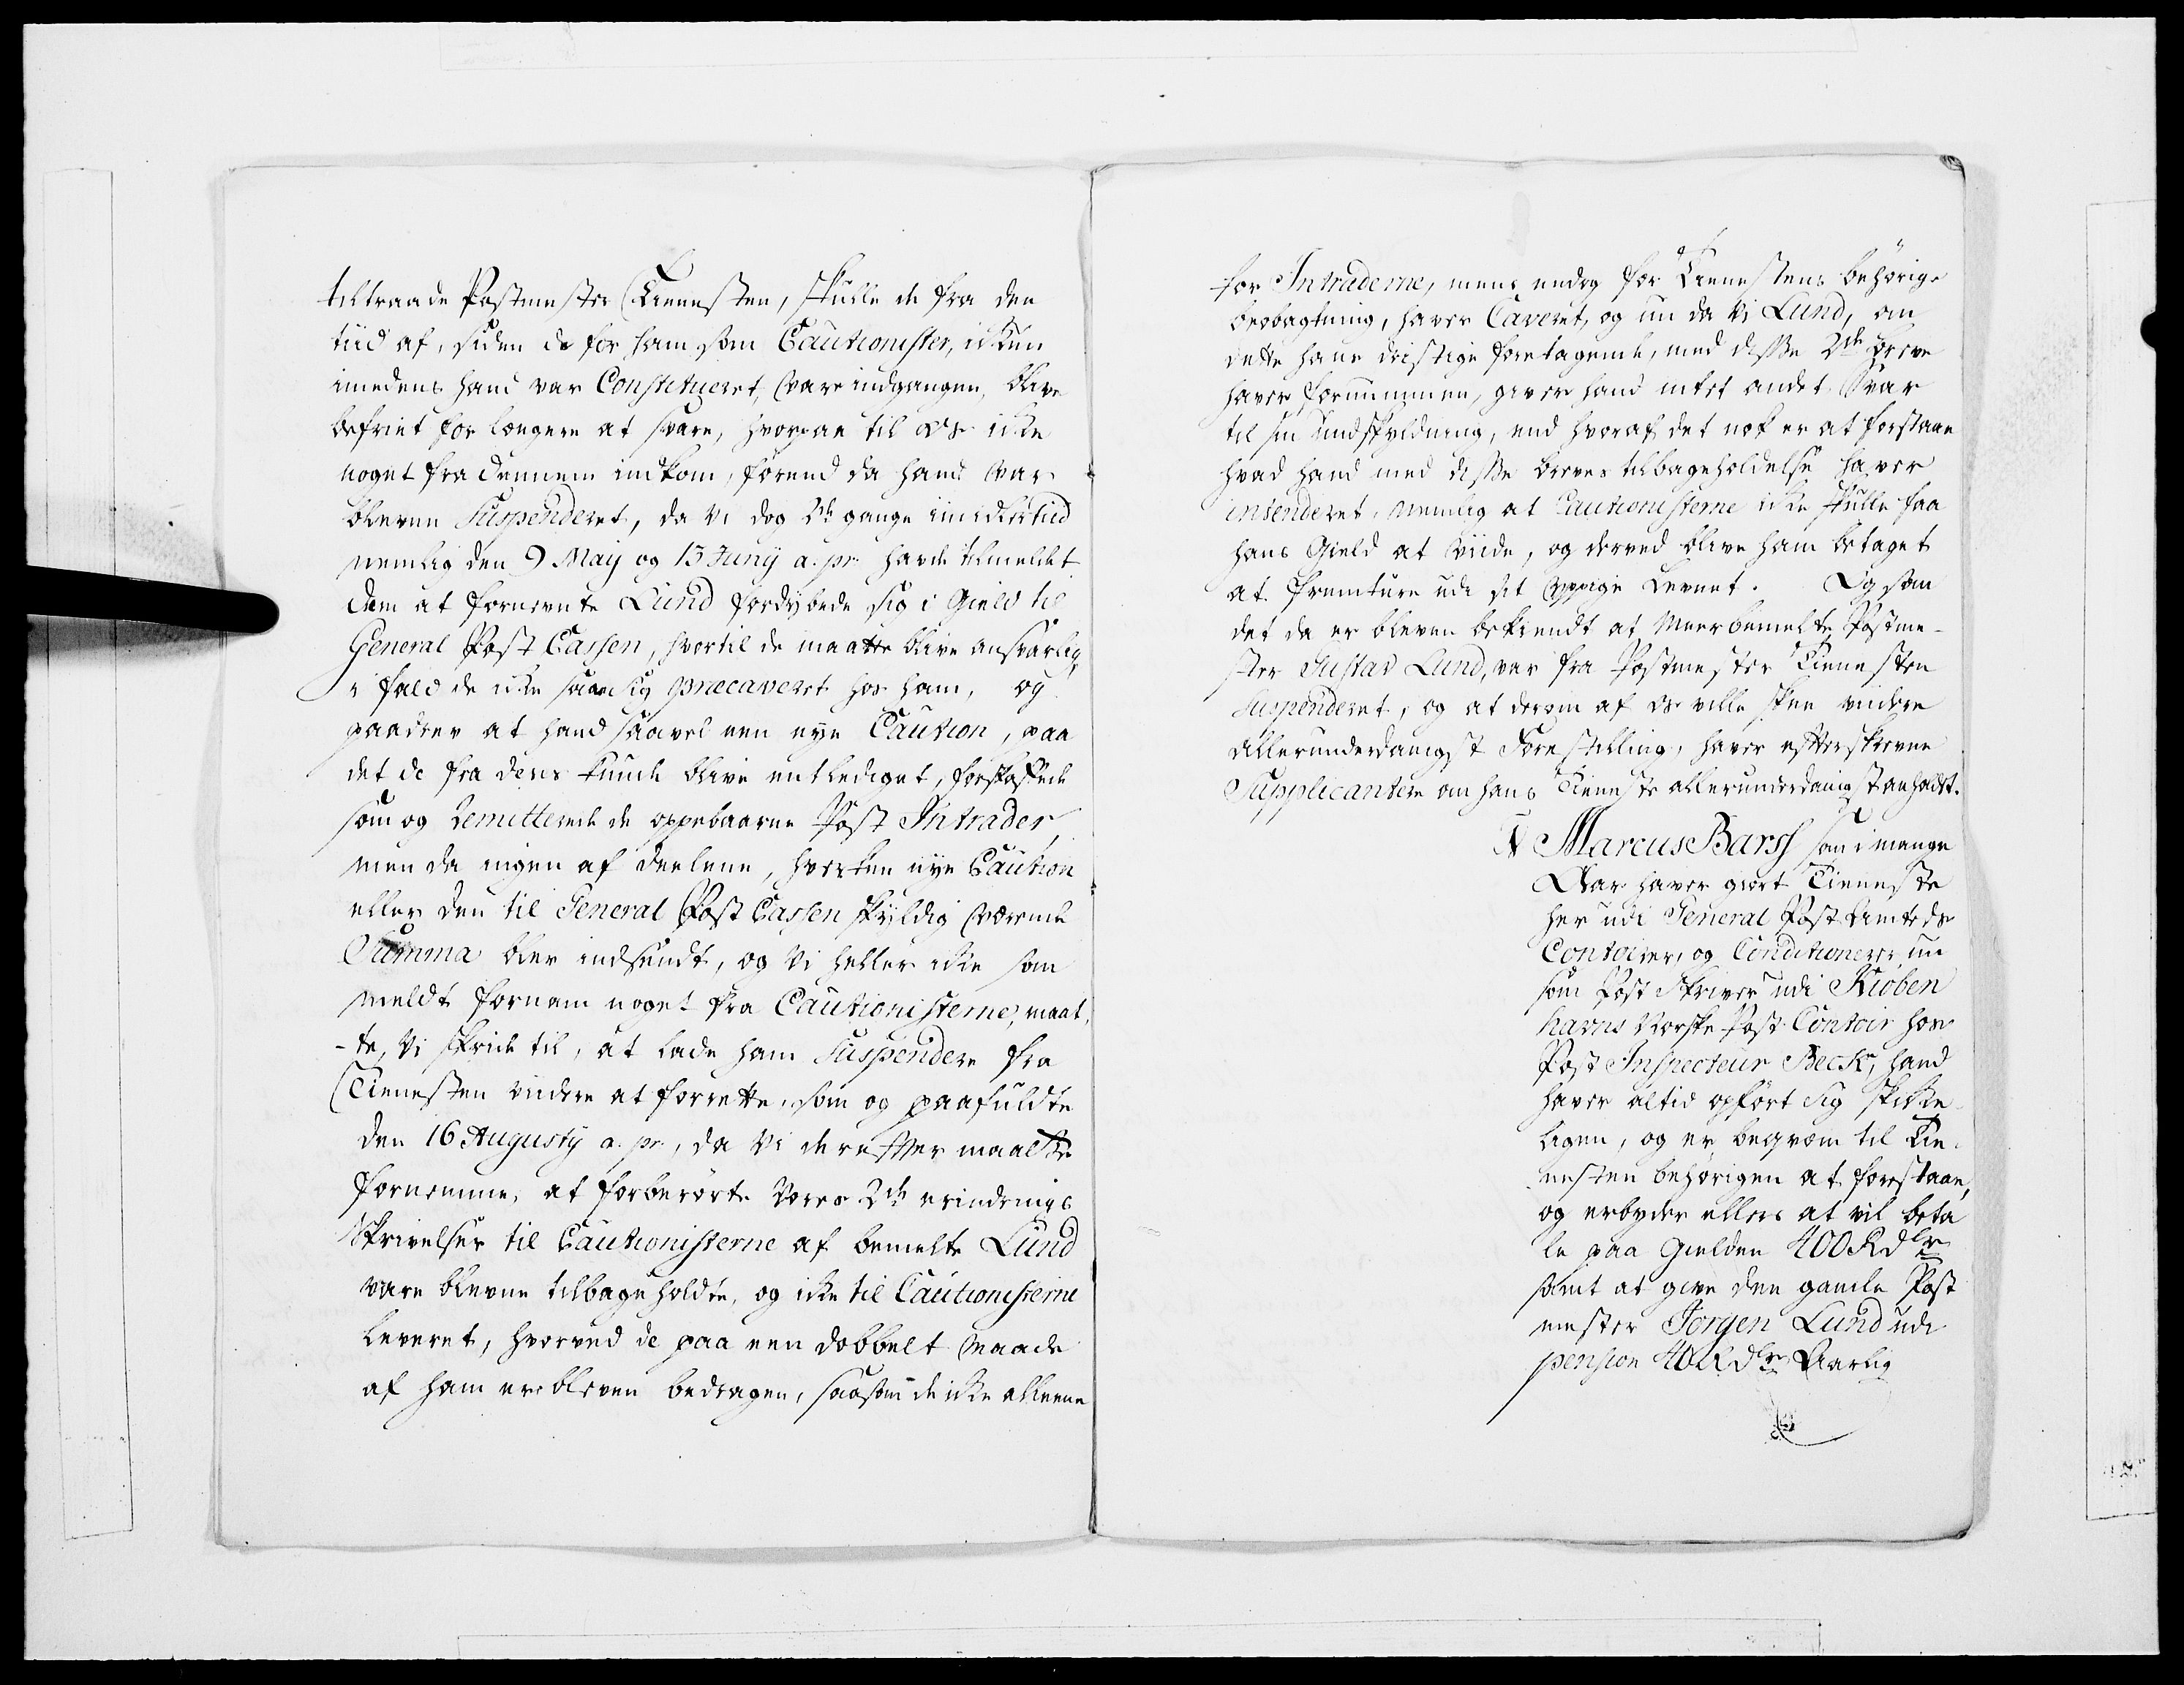 tiltraade Postmester Tienesten, skulle de fra den
tiid af, siden de for ham som Cautionister, ickun
imedens hand var Constitueret, vare indgangen, blive
befriet for længere at svare, hvorpaa til os icke
noget fra dennem indkom, førend da hand var
bleven Suspenderet, da vi dog 2de gange imidlertiid
nemlig den 9 Maij og 13 Junij a. pr. havde tilmeldet
dem at fornevnte Lund fordybede sig i Gield til
General Post Cassen, hvortil de maatte blive ansvarlig,
i fald de icke saae sig præcaveret hos ham, og
paadrev at hand saavel een nye Caution, paa
det de fra deres kunde blive entlediget, forskaffede
som og Remitterede de oppebaarne Post Intrader,
men da ingen af deelene, hverken nye Caution
eller den til General Post Cassen skyldig værende
Summa blev indsendt, og vi heller icke som
meldt fornam noget fra Cautionisterne, maat,
-te, Vi skride til, at lade ham Suspendere fra
Tienesten viidere at forrette, som og paafuldte
den 16 Augusty a. pr., da Vi derefter maatte
fornemme, at forberørte vores 2de erindrings
Skrivelser til Cautionisterne af bemelte Lund
vare blevne tilbageholdte, og icke til Cautionisterne
leveret, hvorved de paa een dobbelt maade
af ham er bleven bedragen, saasom de icke alleene
for Intraderne, mens endog for Tienestens behørige
beobagtning, haver Caveret, og nu da Vi Lund, om
dette hans dristige foretagende, med disse 2de breve
haver fornummen, giver hand intet andet Svar
til sin undskyldning, end hvoraf det nok er at forstaae
hvad hand med disse breves tilbageholdelse haver
intenderet, nemlig at Cautionisterne icke skulle faa
hans Gield at viide, og derved blive ham betaget
at fremture udi sit yppige Levnet. Og som
det da er bleven bekiendt at meerbemelte Postme-
ster Gustav Lund, var fra Postmester Tienesten
Suspenderet, og at derom af os ville skee viidere
allerunderdanigst Forestilling, haver efterskrevne
Supplicantere om hans Tieneste allerunderdanigst anholdt.
Marcus Barss som i mange
Aar haver giort Tieneste
her udi General Post Amtets
Contoirer, og Conditionerer nu
som Post Skriver udi Kiøben
havns Norske Post Contoir hos
Post Inspecteur Beck, hand
haver altid opført sig skicke-
ligen, og er beqvem til Tie-
nesten behørigen at forestaae,
og erbyder ellers at vil beta
le paa Gielden 400 Rdlr
samt at give den gamle Post
mester Jørgen Lund udi
pension 40 Rdlr Aarlig